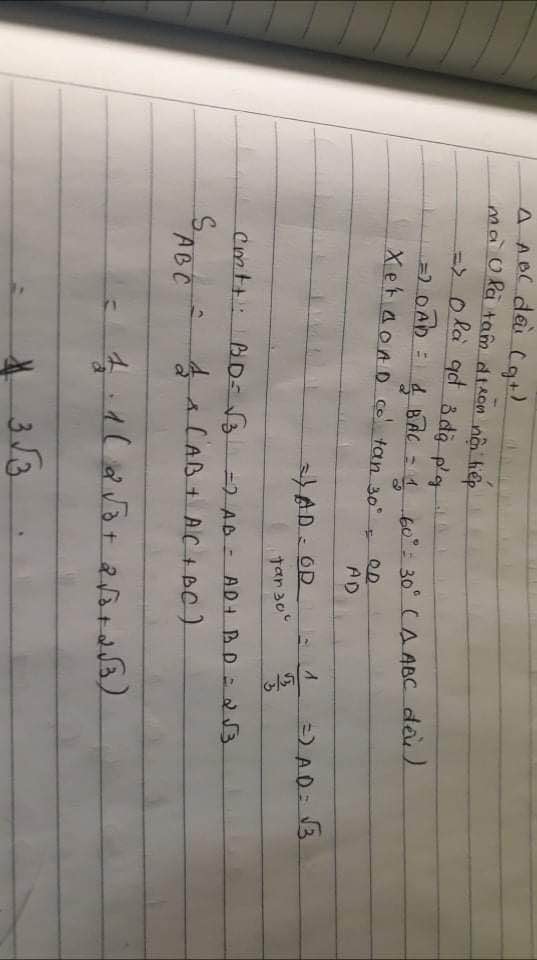 Δ ABC đều (gt)
mà O là tâm đtròn nội tiếp
=> O là gđ 3 đg p/g
=> OAD = 1/2 BAC = 1/2 60° = 30° (Δ ABC đều)
Xét Δ OAD có tan 30° = OD/AD
=> AD = OD/tan30° = 1/(√3/3) => AD = √3
cmtt: BD = √3 => AB = AD + BD = 2√3
S ABC = 1/2 r (AB + AC + BC)
= 1/2 . 1 (2√3 + 2√3 + 2√3)
= 3√3 .